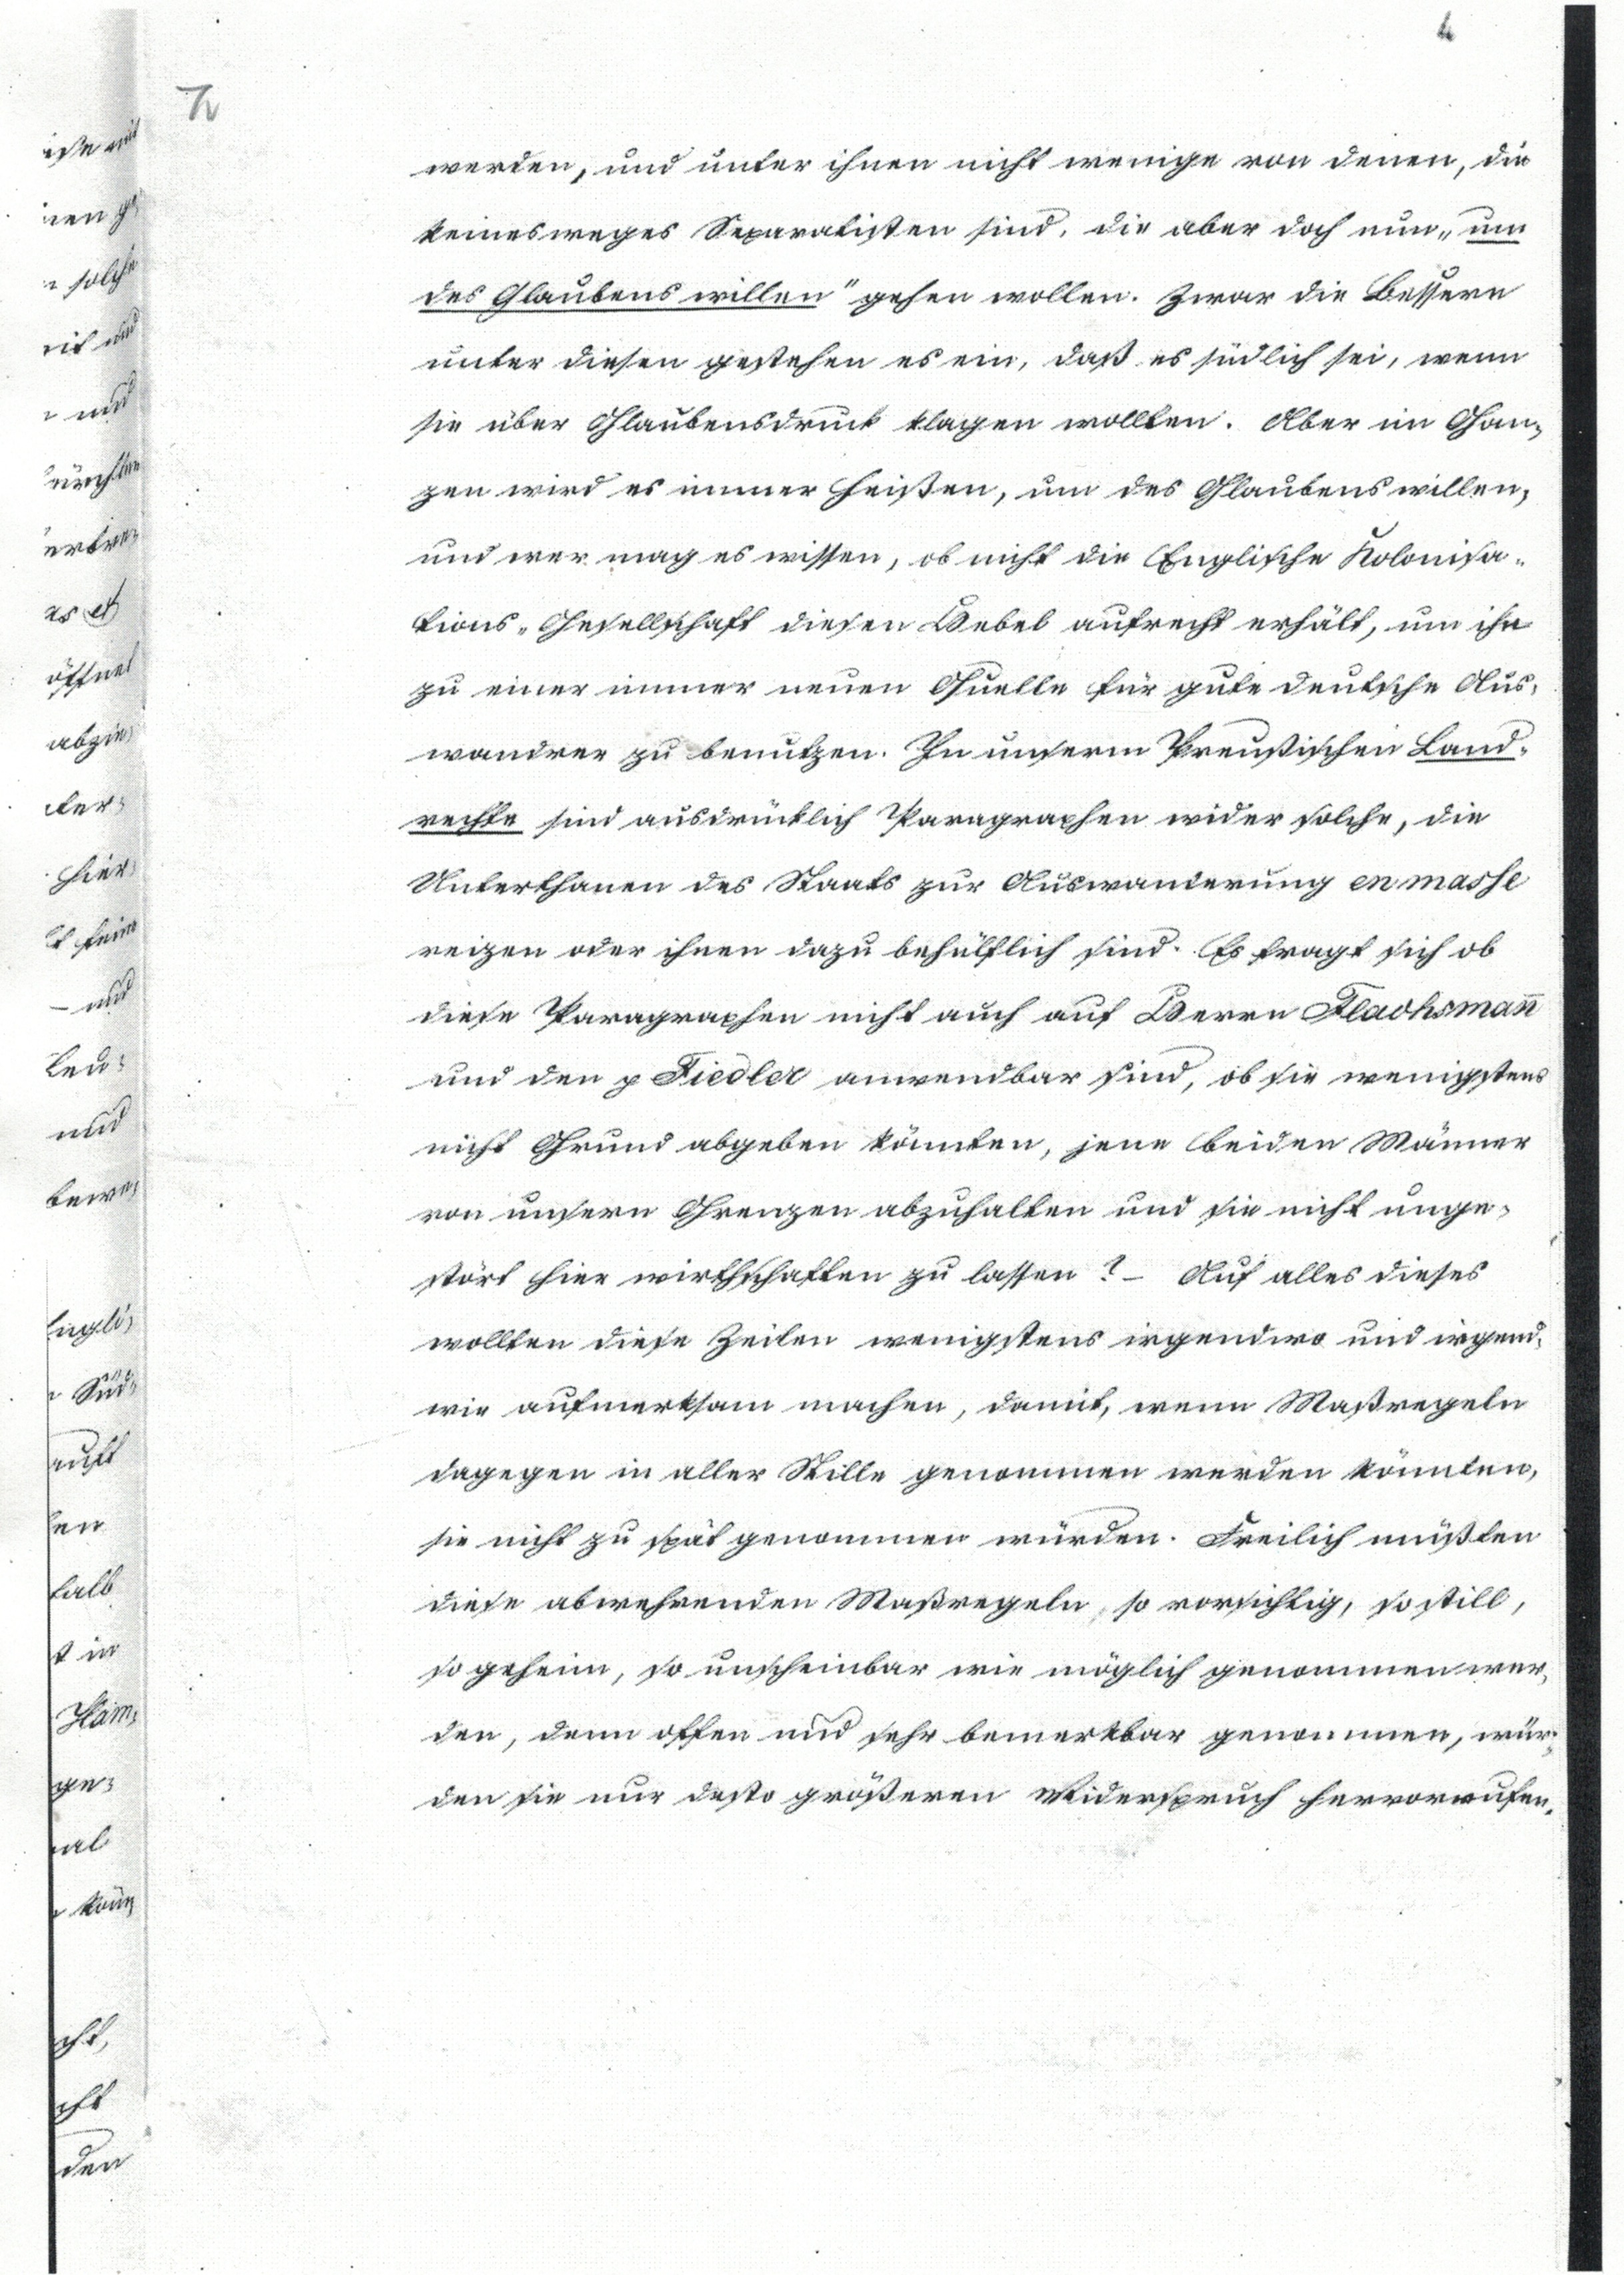 werden, und unter ihnen nicht wenige von denen, die
keinesweges Separatisten sind, die aber doch nun „um
des Glaubens willen" gehen wollen. Zwar die Bessern
unter diesen gestehen es ein, daß es südlich sei, wenn
sie über Glaubensdruck klagen wollten. Aber im Gan-
zen wird es immer heißen, um des Glaubens willen,
und wer mag es wissen, ob nicht die Englische Kolonisa-
tions-Gesellschaft diesen Hebel aufrecht erhält, um ihn
zu einer immer neuen Quelle für gute deutsche Aus-
wandrer zu benutzen. In unserm Preußischen Land-
rechte sind ausdrücklich Paragraphen wider solche, die
Unterthanen des Staats zur Auswanderung en masse
reizen oder ihnen dazu behülflich sind. Es fragt sich ob
diese Paragraphen nicht auch auf Herrn Flachsmañ
und den p Fiedler anwendbar sind, ob sie wenigstens
nicht Grund abgeben könnten, jene beiden Männer
von unsern Grenzen abzuhalten und sie nicht unge-
stört hier wirthschaften zu lassen? – Auf alles dieses
wollten diese Zeilen wenigstens irgendwo und irgend-
wie aufmerksam machen, damit, wenn Maßregeln
dagegen in aller Stille genommen werden könnten,
sie nicht zu spät genommen würden. Freilich müßten
diese abwehrenden Maßregeln, so vorsichtig, so still,
so geheim, so unscheinbar wie möglich genommen wer-
den, denn offen und sehr bemerkbar genommen, wür-
den sie nur desto größeren Widerspruch hervorrufen.